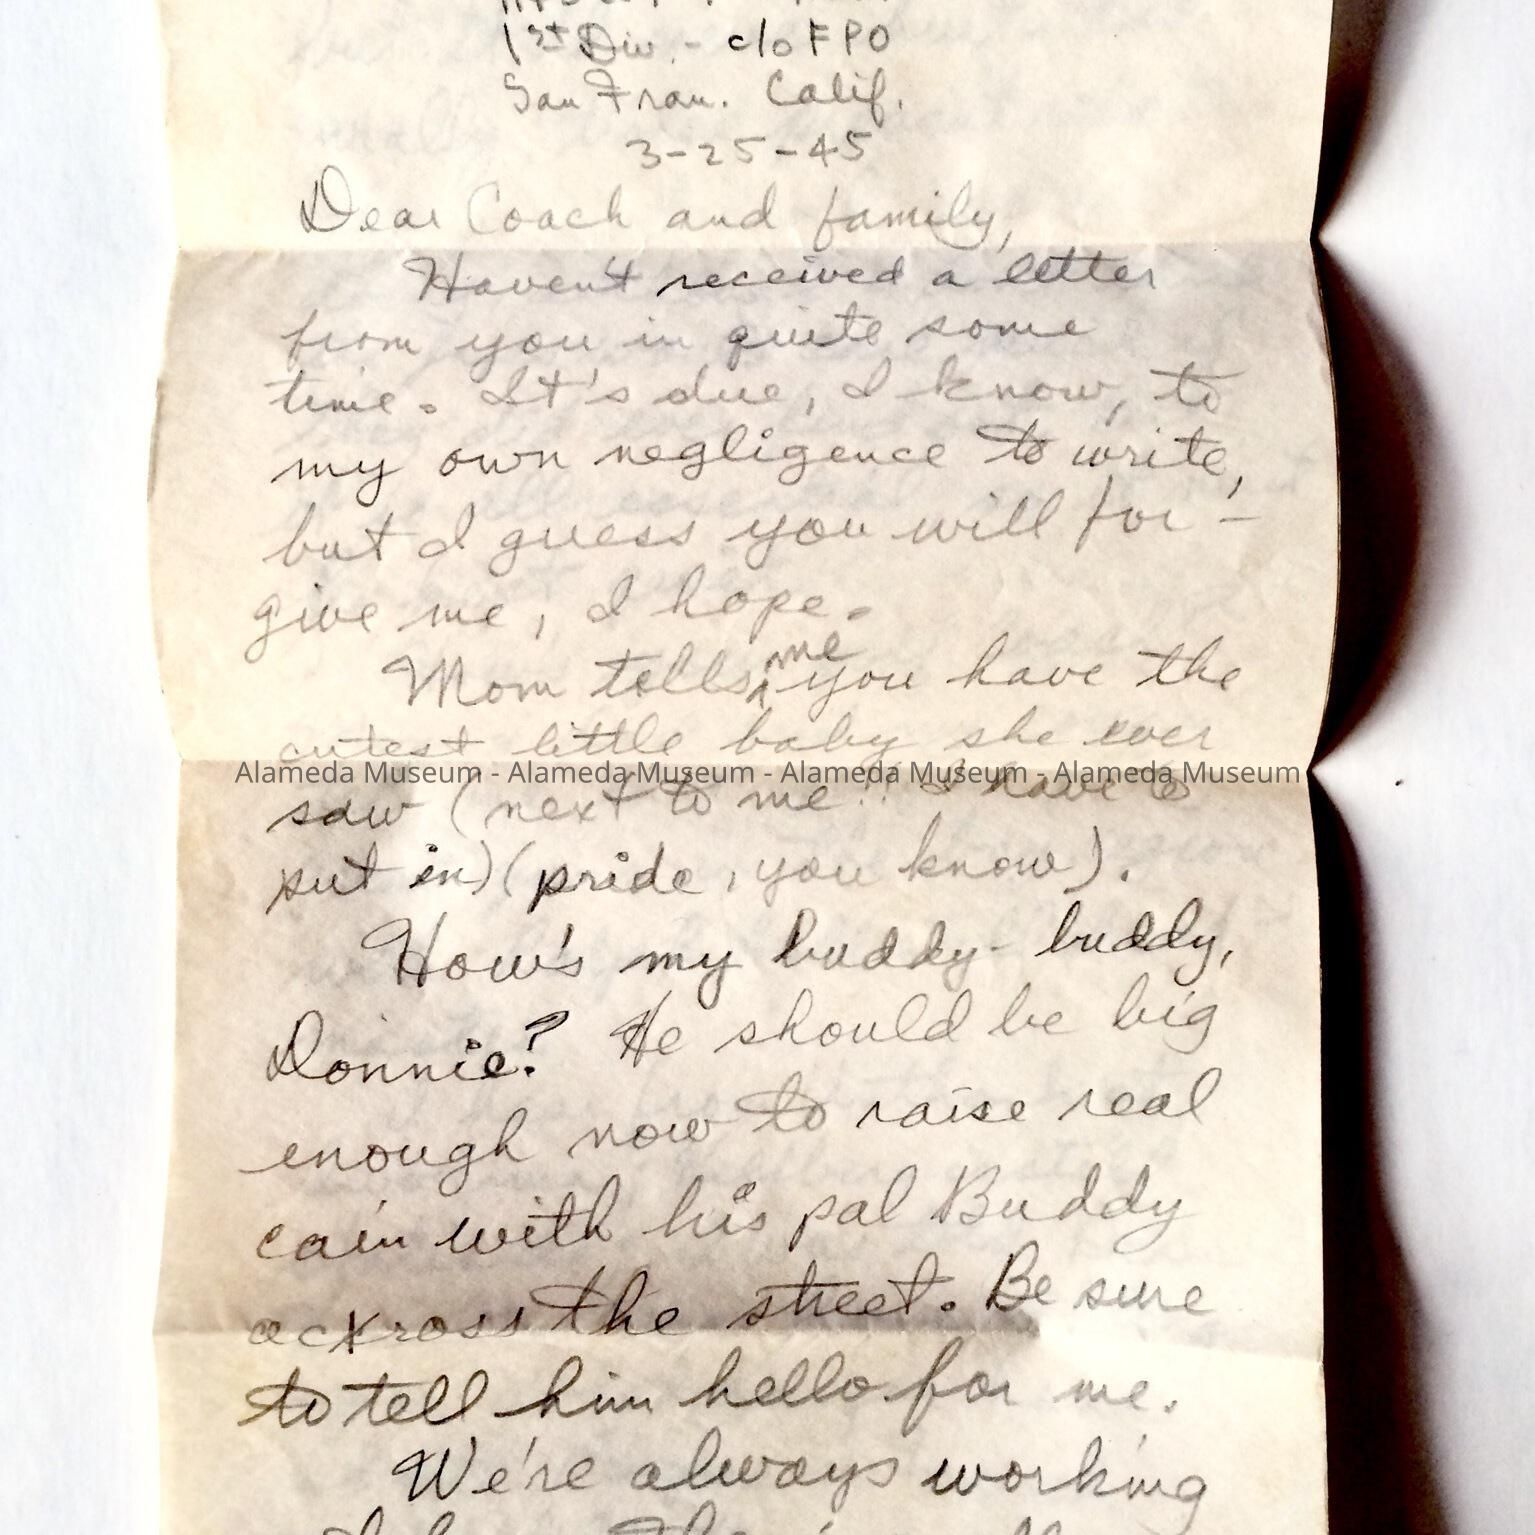 1st Div. - c/o FPO
San Fran. Calif.
3-25-45
Dear Coach and family,
Haven't received a letter
from you in quite some
time. It's due, I know, to
my own negligence to write,
but I guess you will for-
give me, I hope.
Mom tells me you have the
cutest little baby she ever
Alameda Museum - Alameda Museum - Alameda Museum - Alameda Museum
saw (next to me!! I have to
put in) (pride, you know).
How's my buddy-buddy,
Donnie? He should be big
enough now to raise real
cain with his pal Buddy
ackross the street. Be sure
to tell him hello for me.
We're always working